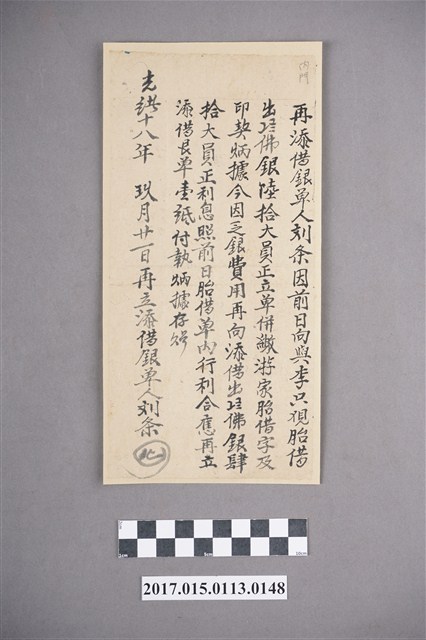 內門
再添借銀單人刘条因前日向與李只覌胎借
出弍佛銀陸拾大員正立單併繳游家胎借字及
印契炳據今因乏銀費用再向添借出弍佛銀肆
拾大員正利息照前日胎借單內行利合應再立
添借艮單壹紙付執炳據存炤
光緒十八年 玖月廿一日再立添借銀單人刘条
2017.015.0113.0148